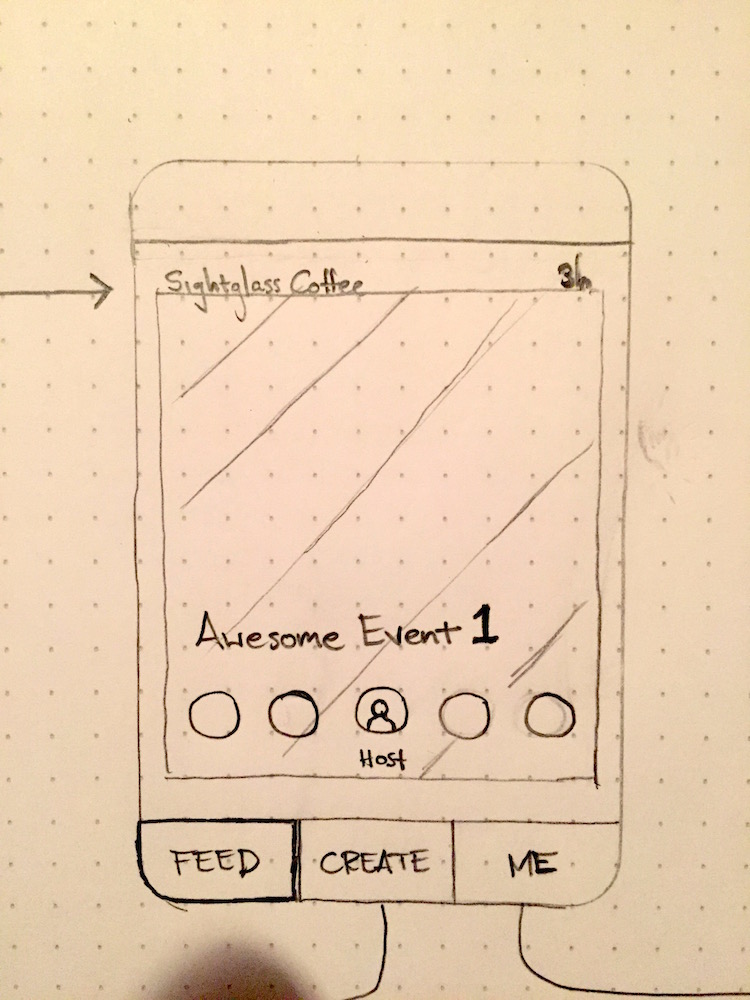 Sightglass Coffee 3h
Awesome Event 1
Host
FEED CREATE ME